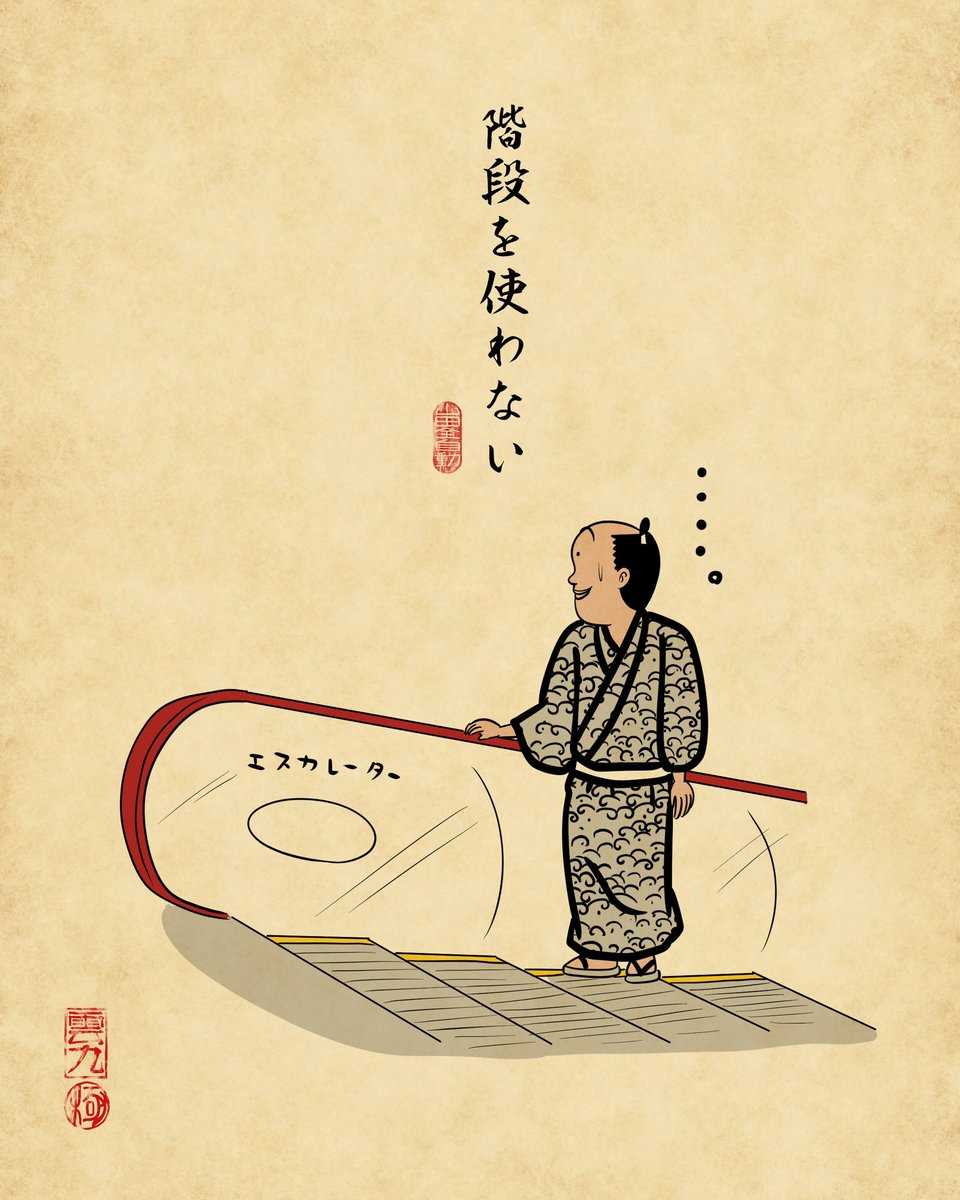 階段を使わない
エスカレーター